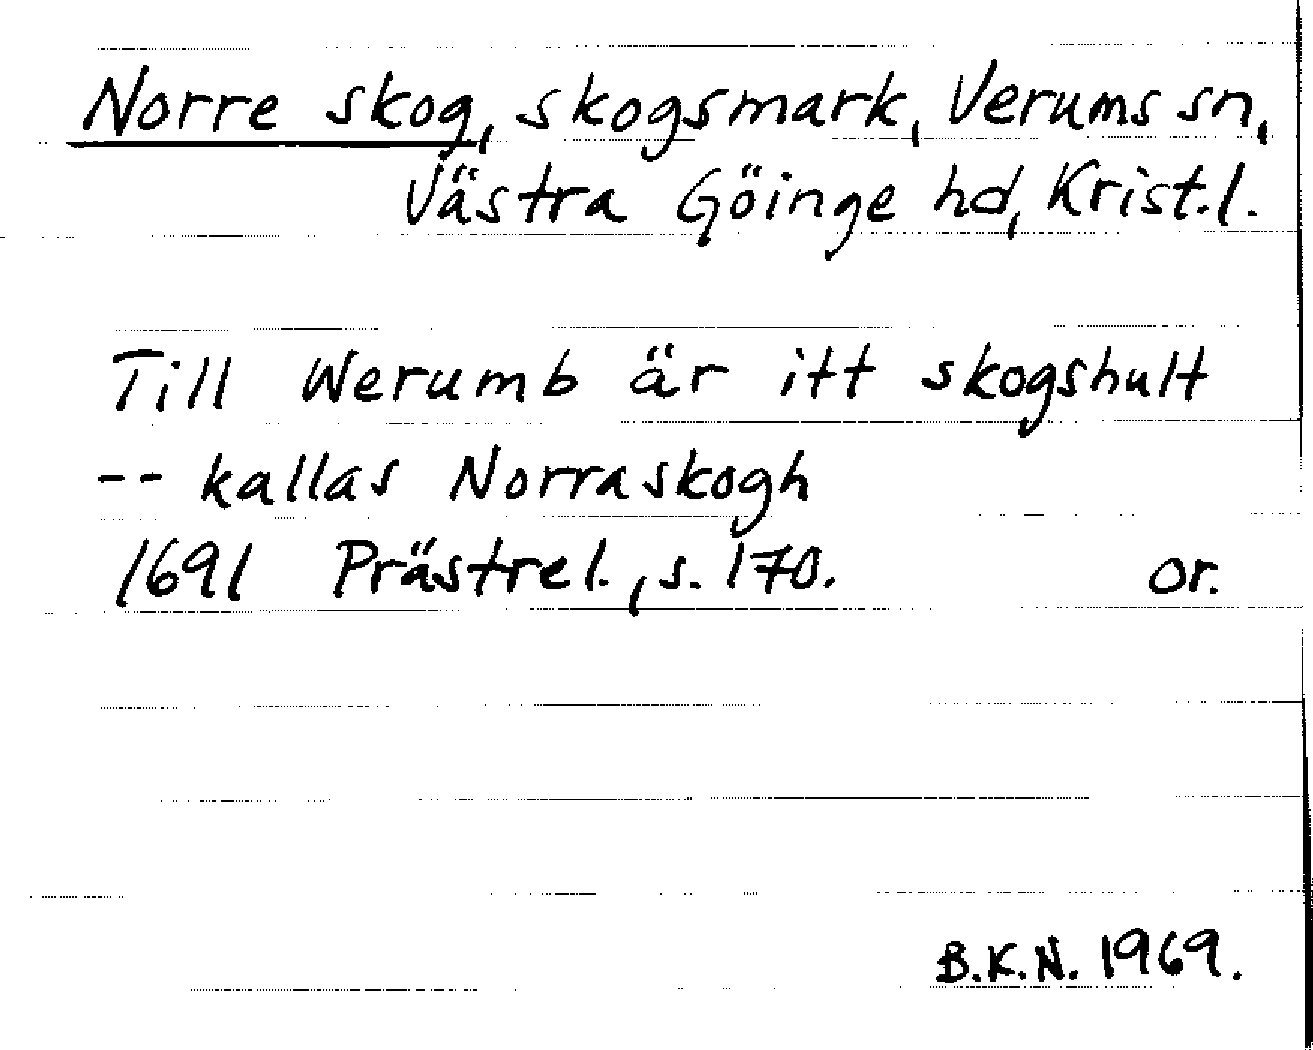 Norre skog, skogsmark, Verums sn,
Västra Göinge hd, Krist.l.
Till Werumb är itt skogshult
-- kallas Norraskogh
1691 Prästrel., s. 170. or.
B.K.N. 1969.